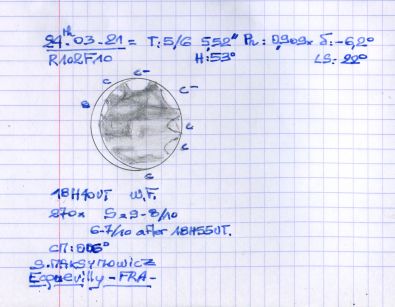 24th.03.21 = T: 5/6 5,52" Ph: 0,909x δ: -6,2°
R102F10 H: 53° LS: 22°
C C-
C C-
B
C
C
C
18H40UT W.F.
270x S = 9-8/10
6-7/10 after 18H55UT.
CM: 006°
S. MAKSYMOWICZ
Ecquevilly - FRA -